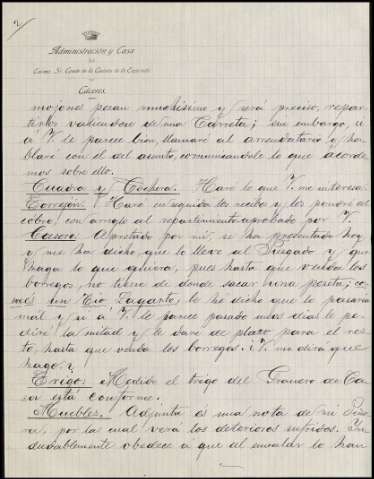 2
Administración y Casa
del
Excmo. Sr. Conde de la
Cáceres
mojones pesan muchísimo y será preciso repar
tirlos valiendose de una Carreta; sin embargo, si
á V. le parece bien, llamaré al arrendatario y ha
blaré con él del asunto, comunicandole lo que acorde
mos sobre ello.
Cuadra y Cochera. Haré lo que V. me interesa.
Torrejón. Haré enseguida los recibos y los pondré al
cobro, con arreglo al repartimiento aprobado por V.
Casero. Apretado por mí, se ha presentado hoy
y me ha dicho, que lo lleve al Juzgado y que
haga lo que quiera, pues hasta que venda los
borregos, no tiene de donde sacar una peseta; co
mo es un Tio le he dicho que lo pasaría
mal y si á V. le parece pasado unos dias le pe
diré la mitad y le daré de plazo para el res
to, hasta que venda los borregos. V. me dirá que
hago.
Trigo. Medido el trigo del Granero de Ca
sa está conforme.
Muebles. Adjunta es una nota de mi
por la cual verá los deterioros sufridos. In
dudablemente obedece a que al envalar lo han